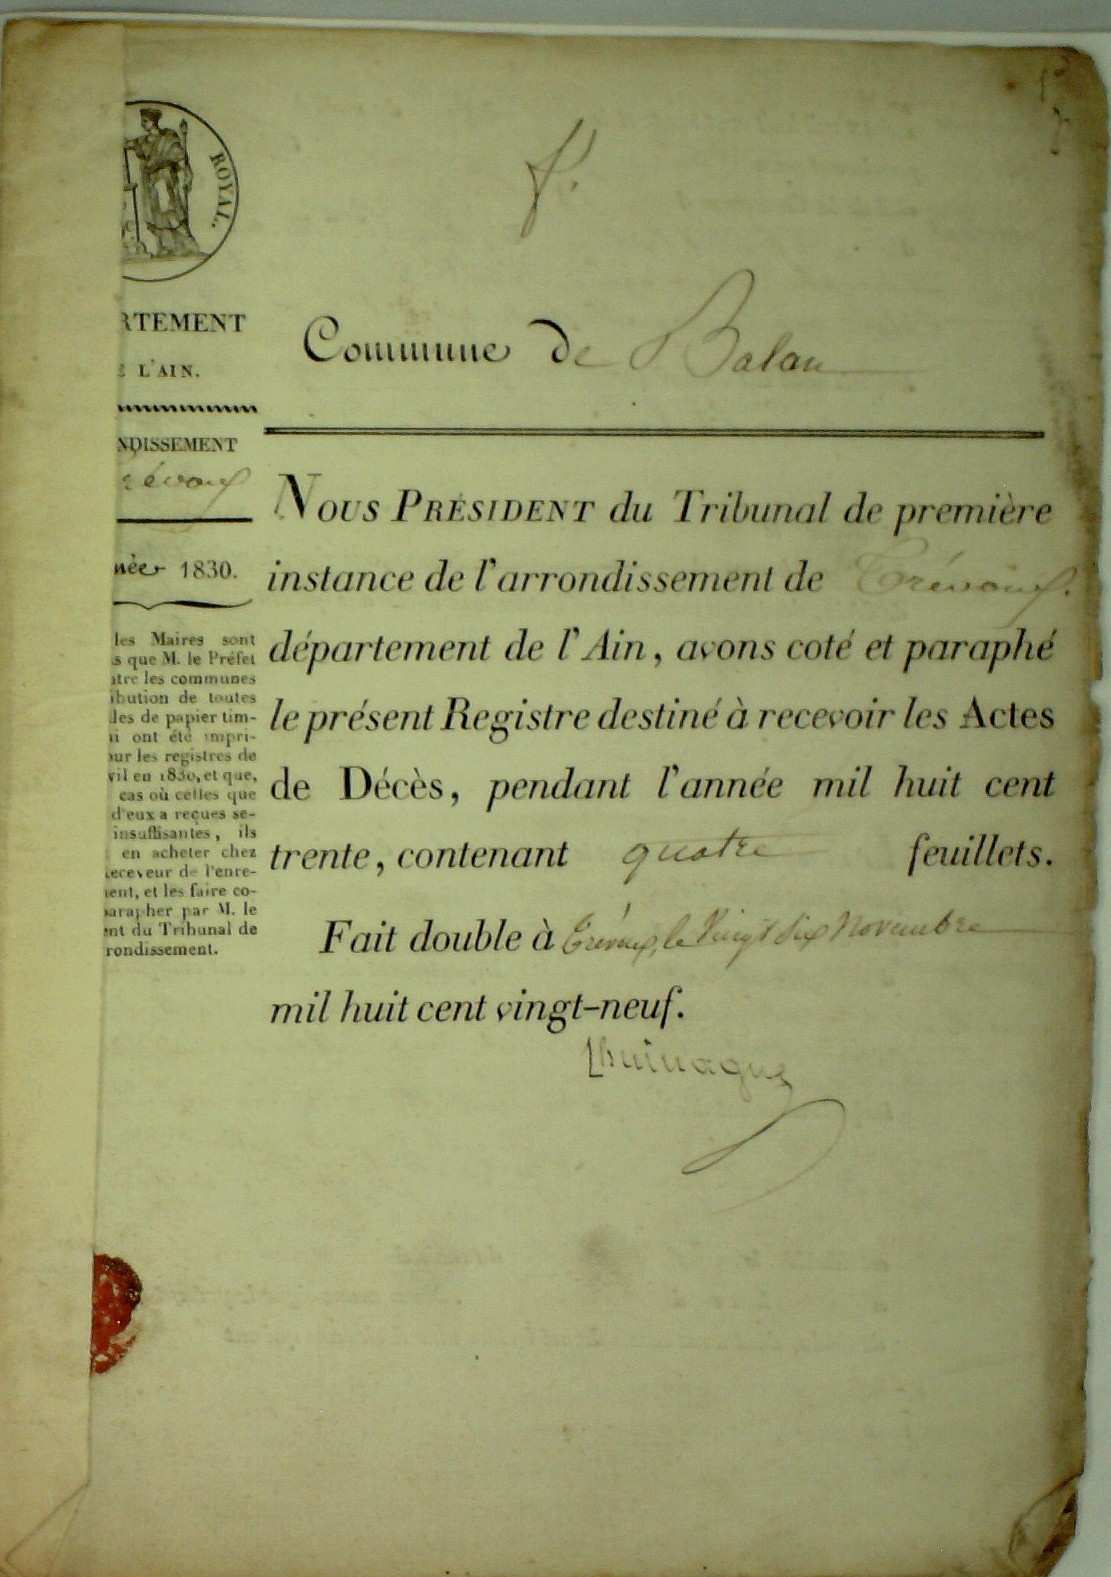 ROYAL.
RTEMENT
L'AIN.
NDISSEMENT
révoux
née 1830.
les Maires sont
s que M. le Préfet
tre les communes
ibution de toutes
les de papier tim-
i ont été impri-
ur les registres de
vil en 1830, et que,
cas où celles que
d'eux a reçues se-
insuffisantes, ils
en acheter chez
eceveur de l'enre-
ent, et les faire co-
arapher par M. le
nt du Tribunal de
rondissement.
Commune de Balan
NOUS PRÉSIDENT du Tribunal de première
instance de l'arrondissement de Trévoux.
département de l'Ain, avons coté et paraphé
le présent Registre destiné à recevoir les Actes
de Décès, pendant l'année mil huit cent
trente, contenant quatre feuillets.
Fait double à Trévoux, le Vingt six Novembre
mil huit cent vingt-neuf.